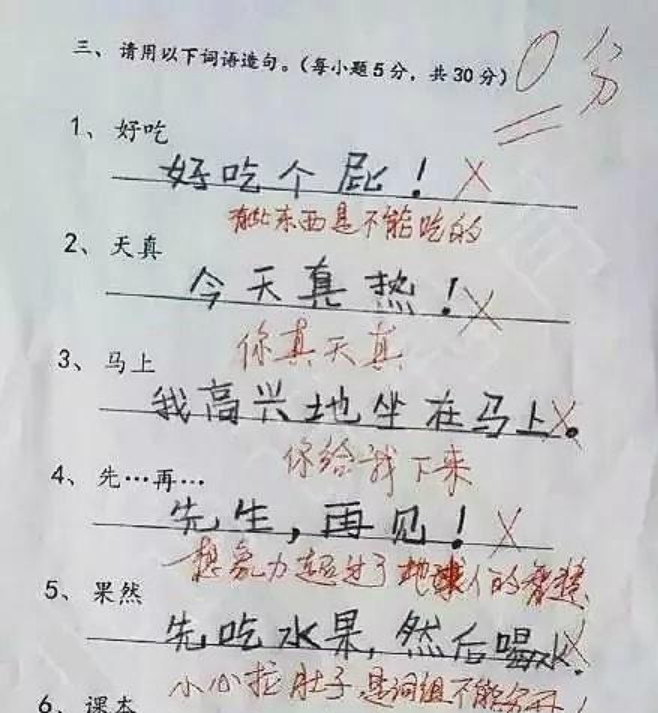 三、请用以下词语造句。(每小题5分，共30分) 0分
1、好吃
好吃个屁！
有些东西是不能吃的
2、天真
今天真热！
你真天真
3、马上
我高兴地坐在马上。
你给我下来
4、先…再…
先生，再见！
想象力超过了地球人的智慧
5、果然
先吃水果，然后喝水.
小心拉肚子 是词组不能分开！
6、课本